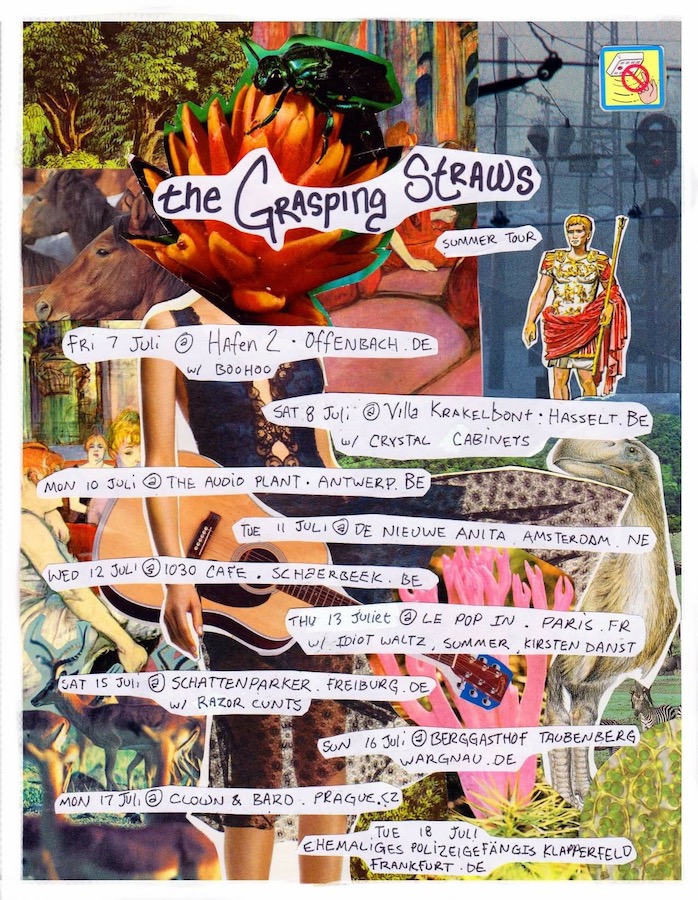 the GRASPING STRAWS
SUMMER TOUR
FRI 7 Juli @ Hafen 2 · OFFENBACH . DE
w/ BOOHOO
SAT 8 Juli @ Villa KRAKELBONT : HASSELT. BE
w/ CRYSTAL CABINETS
MON 10 JULI @ THE AUDIO PLANT · ANTWERP. BE
TUE 11 JULI @ DE NIEUWE ANITA . AMSTERDAM . NE
WED 12 JULI @ 1030 CAFE . SCHAERBEEK . BE
THU 13 Juliet @ LE POP IN . PARIS . FR
w/ IDIOT WALTZ , SUMMER , KIRSTEN DANST
SAT 15 Juli @ SCHATTENPARKER . FREIBURG . DE
w/ RAZOR CUNTS
SUN 16 Juli @ BERGGASTHOF TAUBENBERG
WARGNAU . DE
MON 17 Juli @ CLOWN & BARD . PRAGUE . CZ
TUE 18 JULI
EHEMALIGES POLIZEIGEFÄNGIS KLAPPERFELD
FRANKFURT . DE